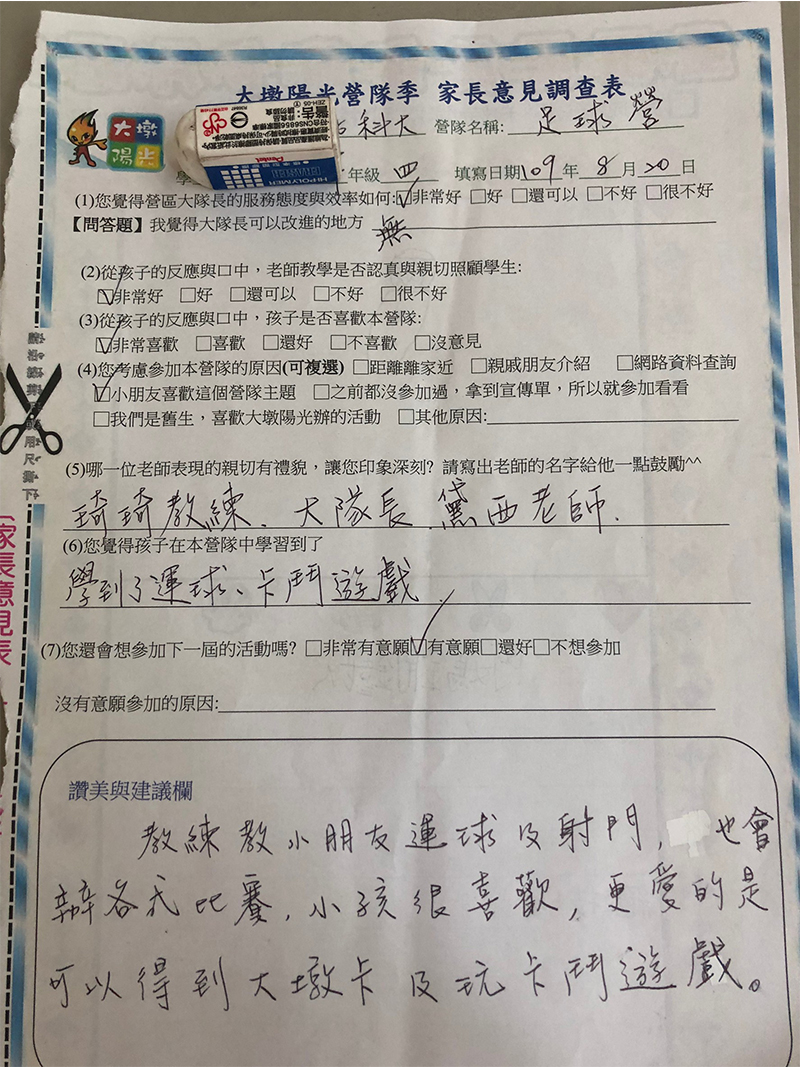 大墩陽光營隊季 家長意見調查表
大墩
陽光
科大 營隊名稱: 足球營
年級 四 填寫日期109年8月20日
(1)您覺得營區大隊長的服務態度與效率如何:☑非常好 □好 □還可以 □不好 □很不好
【問答題】我覺得大隊長可以改進的地方 無
(2)從孩子的反應與口中，老師教學是否認真與親切照顧學生:
☑非常好 □好 □還可以 □不好 □很不好
(3)從孩子的反應與口中，孩子是否喜歡本營隊:
☑非常喜歡 □喜歡 □還好 □不喜歡 □沒意見
(4)您考慮參加本營隊的原因(可複選) □距離離家近 □親戚朋友介紹 □網路資料查詢
☑小朋友喜歡這個營隊主題 □之前都沒參加過，拿到宣傳單，所以就參加看看
□我們是舊生，喜歡大墩陽光辦的活動 □其他原因:
(5)哪一位老師表現的親切有禮貌，讓您印象深刻? 請寫出老師的名字給他一點鼓勵^^
琦琦教練、大隊長 黛西老師.
(6)您覺得孩子在本營隊中學習到了
學到了運球、卡鬥遊戲.
(7)您還會想參加下一屆的活動嗎? □非常有意願☑有意願□還好□不想參加
沒有意願參加的原因:
讚美與建議欄
教練教小朋友運球及射門, 也會
辦各式比賽, 小孩很喜歡, 更愛的是
可以得到大墩卡及玩卡鬥遊戲。
家長意見表
警告:
Pentel
HI-POLYMER
ZEH-05